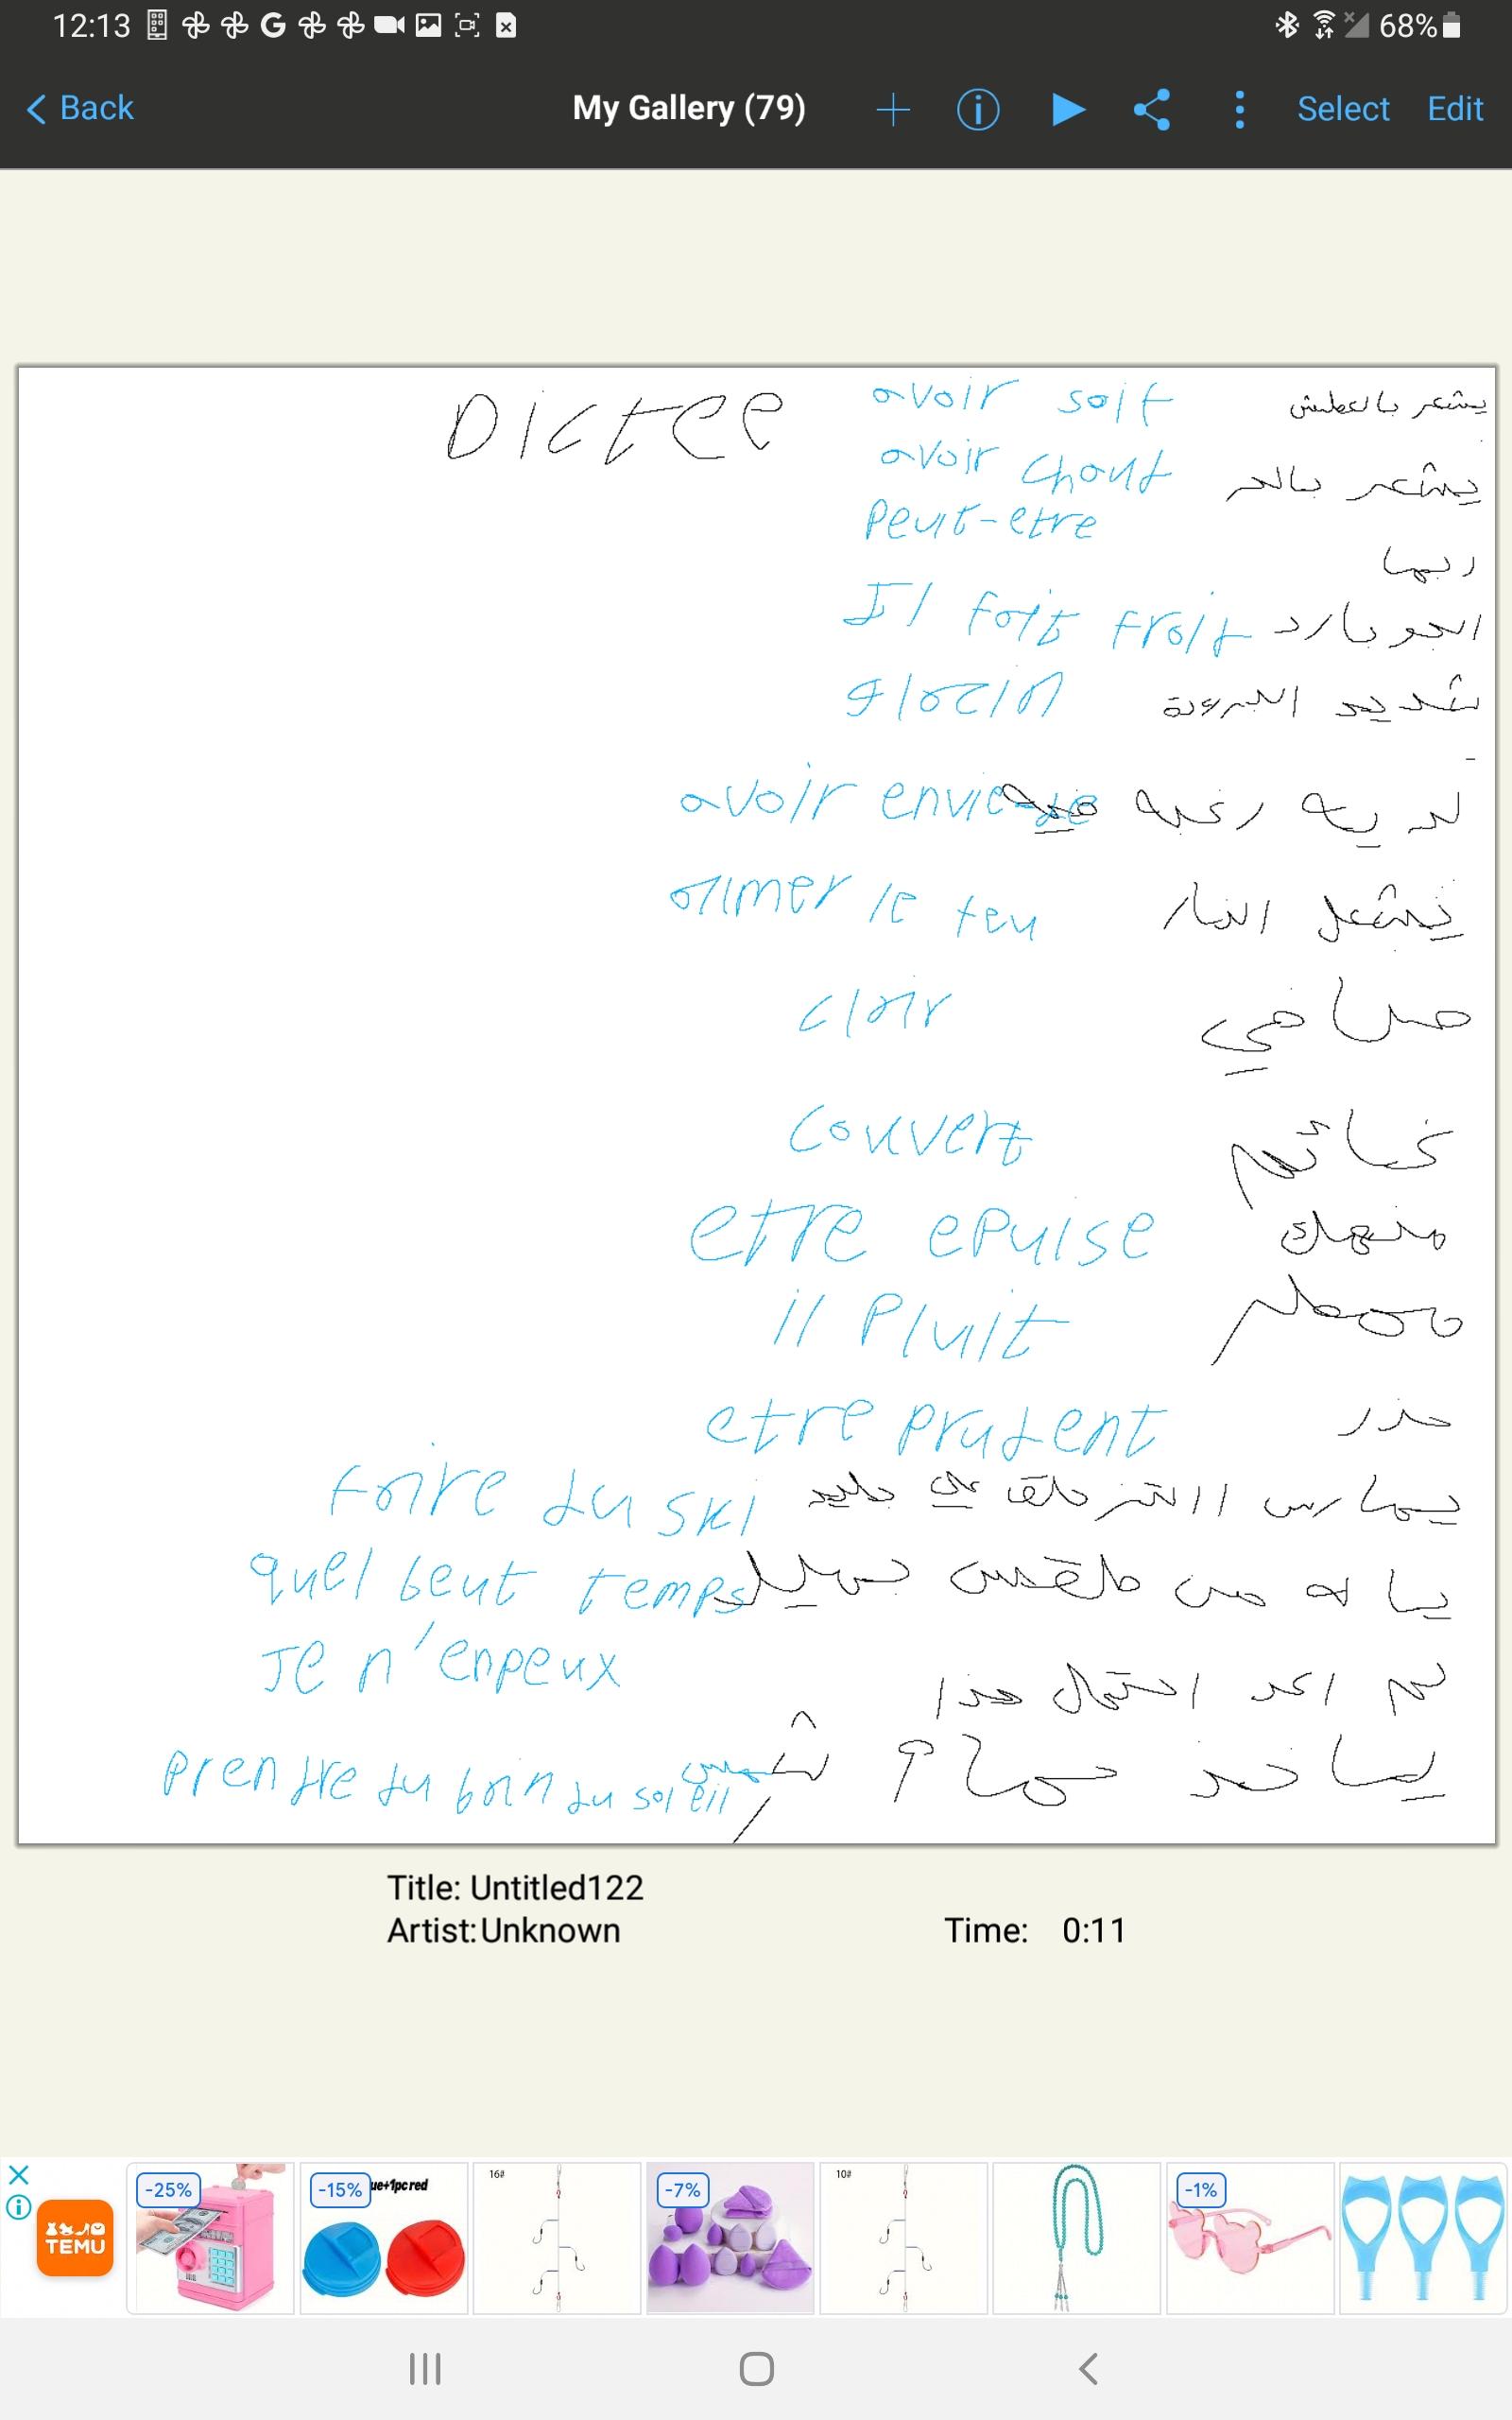 12:13 68%
Back My Gallery (79) Select Edit
Dictee
avoir soif يشعر بالعطش
avoir chaud يشعر بالحر
Peut-etre
ربما
Il fait froid الجو بارد
glacin شديد البرودة
avoir envie de لديه رغبه في
alimer le feu نشعل النار
clair صافي
couvert غائم
etre epuise منهك
il Pluit ممطر
etre prudent حذر
faire du ski يمارس التزحلق على جليد
quel beut temps ياله من طقس جميل
Je n'enpeux لم اعد احتمل هذا
Prendre du bain du soleil ياخذ حمام شمس
Title: Untitled122
Artist: Unknown Time: 0:11
-25% -15% ue+1pc red 16# -7% 10# -1%
TEMU